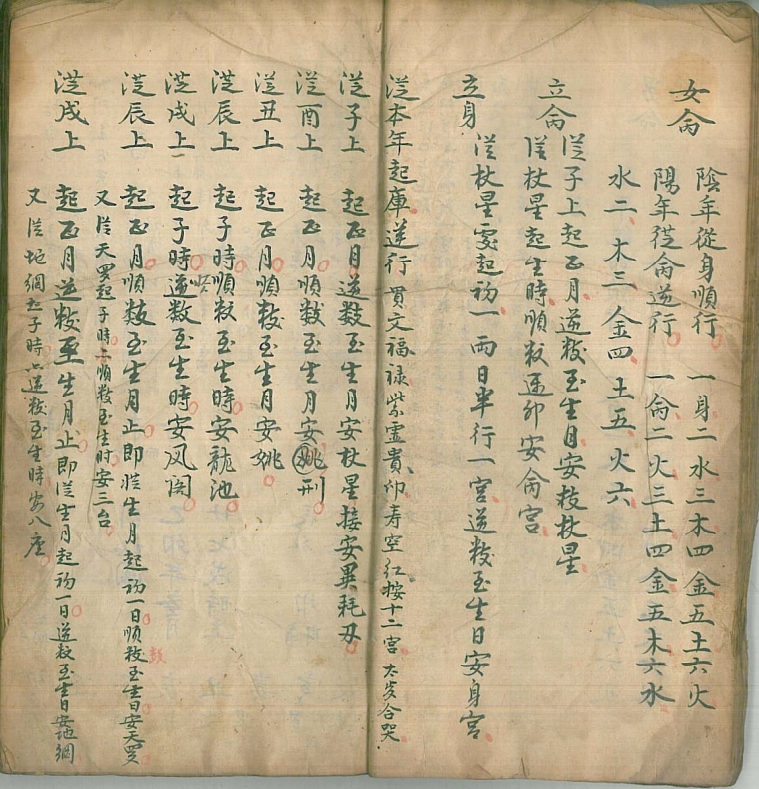 女命
陰年從身順行 一身二水三木四金五土六火
陽年從命逆行 一命二火三土四金五木六水
水二木三金四土五火六
立命 從子上起正月逆数至生月安杖星
從杖星起生時順数逢卯安命宮
立身 從杖星處起初一兩日半行一宮逆数至生日安身宮
從本年起庫逆行貫文福禄紫虛貴印寿空紅按十二宮太歲合哭
從子上 起正月逆数至生月安杖星接安異耗刃
從酉上 起正月順数至生月安姚刑
從丑上 起正月順数至生月安姚
從辰上 起子時順数至生時安龍池
從戌上 起子時逆数至生時安凤阁
從辰上 起正月順数至生月止即從生月起初一日順数至生日安天罗
又從天罗起子時上順数至生时安三台
從戌上 起正月逆数至生月止即從生月起初一日逆数至生日安地網
又從地網起子時上逆数至生時安八座